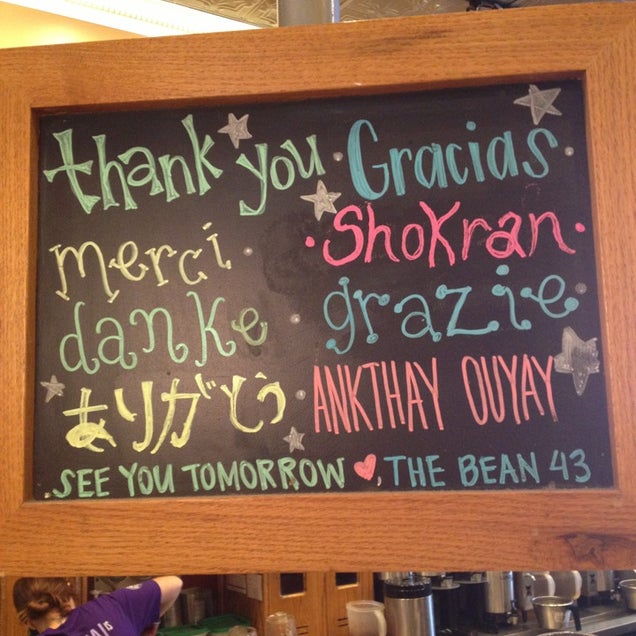 thank you Gracias
merci Shokran
danke grazie
ありがとう ANKTHAY OUYAY
SEE YOU TOMORROW THE BEAN 43